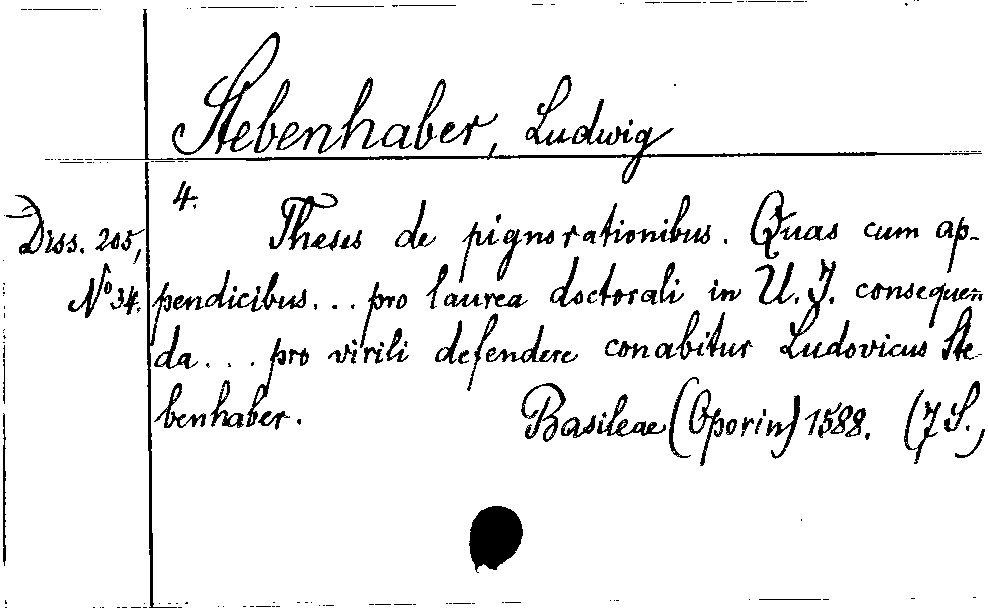 Stebenhaber, Ludwig
4.
Diss. 205,
No 34.
Theses de pignorationibus. Quas cum ap-
pendicibus... pro laurea doctorali in U. J. consequen
da... pro virili defendere conabitur Ludovicus Ste
benhaber.
Basileae (Oporin) 1588. (7 S.)